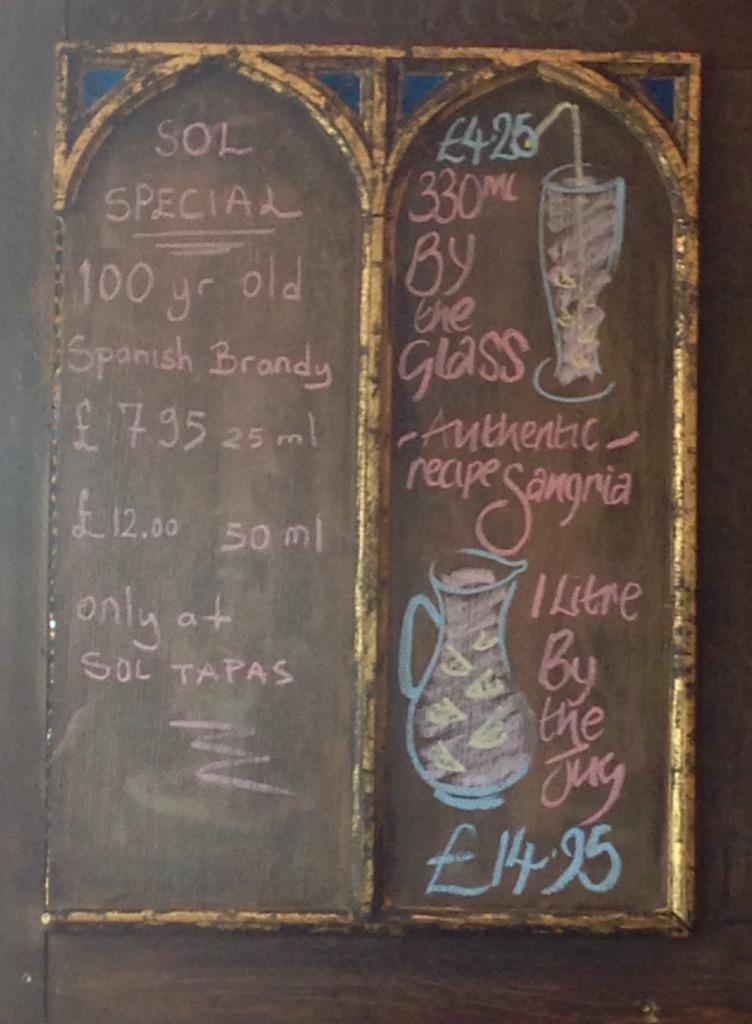 SOL
SPECIAL
100 yr old
Spanish Brandy
£ 7.95 25 ml
£12.00 50 ml
only at
SOL TAPAS
£4.25
330ML
BY
the
GLASS
-Authentic-
recipe Sangria
1 Litre
By
the
Jug
£14.25